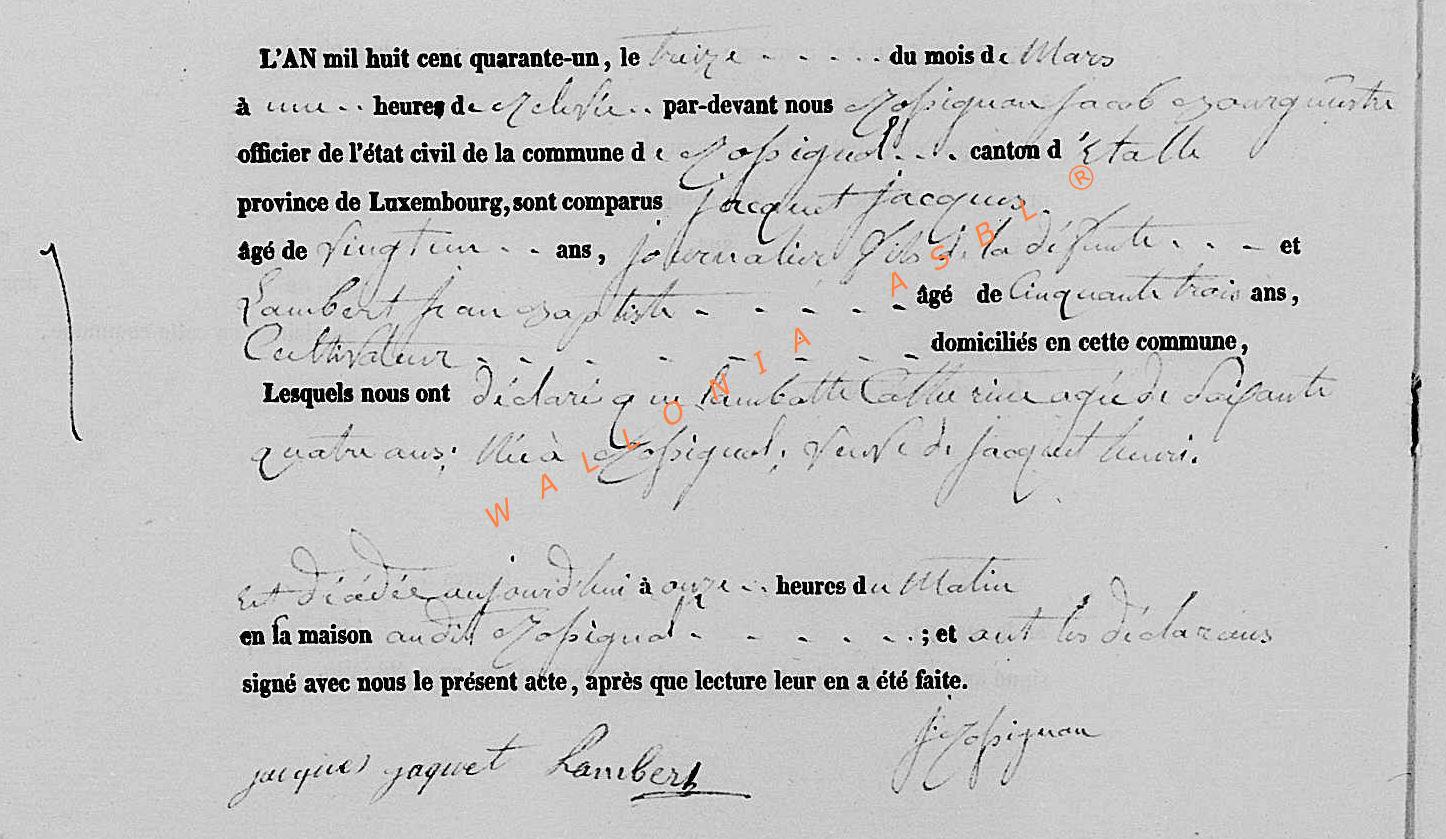 L'AN mil huit cent quarante-un, le treize - - - - du mois de Mars
à une - - heures de relevée - - par-devant nous Rossignon Jacob Bourgmestre
officier de l'état civil de la commune de Rossignol - - - canton d'Etalle
province de Luxembourg, sont comparus Jacquet Jacques
âgé de vingt un - - ans, journalier fils de la défunte - - - et
Lambert jean Baptiste - - - - - âgé de Cinquante trois ans,
Cultivateur - - - - - - - - - domiciliés en cette commune,
Lesquels nous ont déclaré que Catherine agée de Soixante
quatre ans; Née à Rossignol, veuve de Jacquet henri.
Est décédée aujourd'hui à onze - - heures du Matin
en sa maison audit Rossignol - - - - - - ; et ont les déclarans
signé avec nous le présent acte, après que lecture leur en a été faite.
jacques jaquet Lambert J. Rossignon
WALLONIA ASBL ®